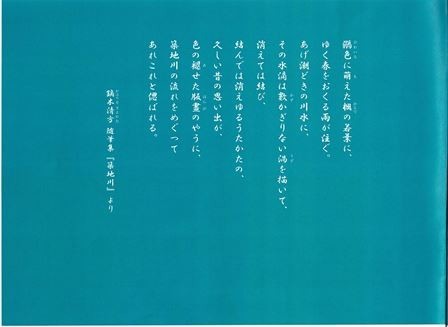 鶸色に萌えた楓の若葉に、
ゆく春をおくる雨が注ぐ。
あげ潮どきの川水に、
その水滴は数かぎりない渦を描いて、
消えては結び、
結んでは消えゆるうたかたの、
久しい昔の思い出が、
色の褪せた版畫のやうに、
築地川の流れをめぐつて
あれこれと偲ばれる。
鏑木清方 随筆集「築地川」より